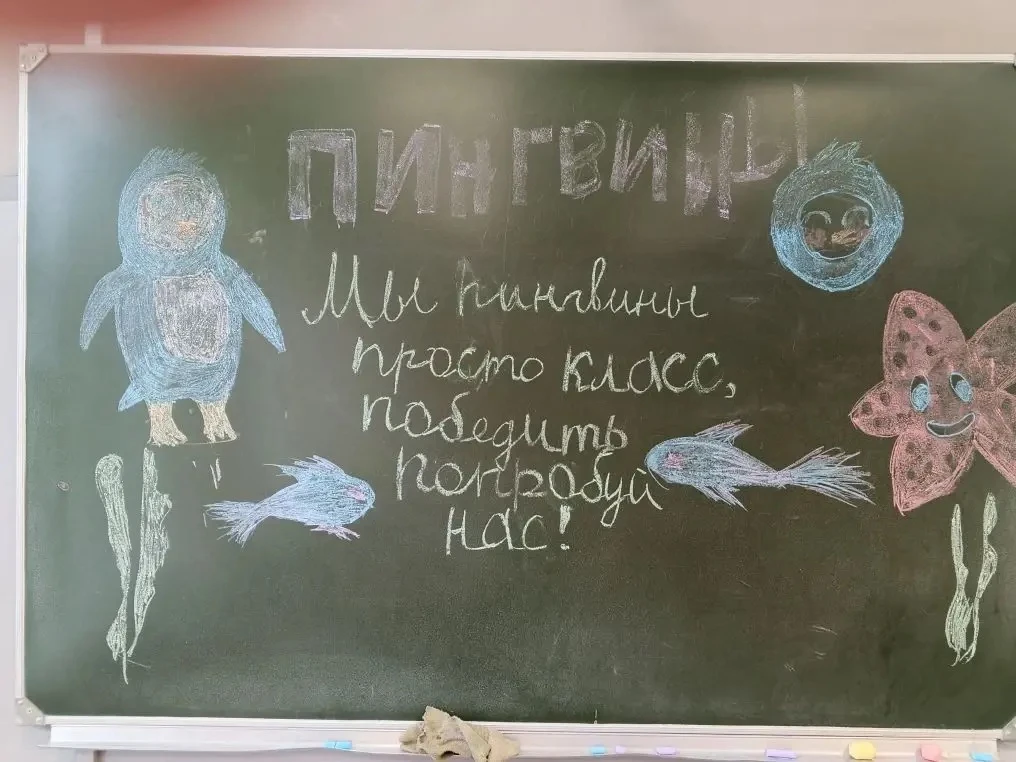 ПИНГВИНЫ
Мы пингвины
просто класс,
победить
попробуй
нас!